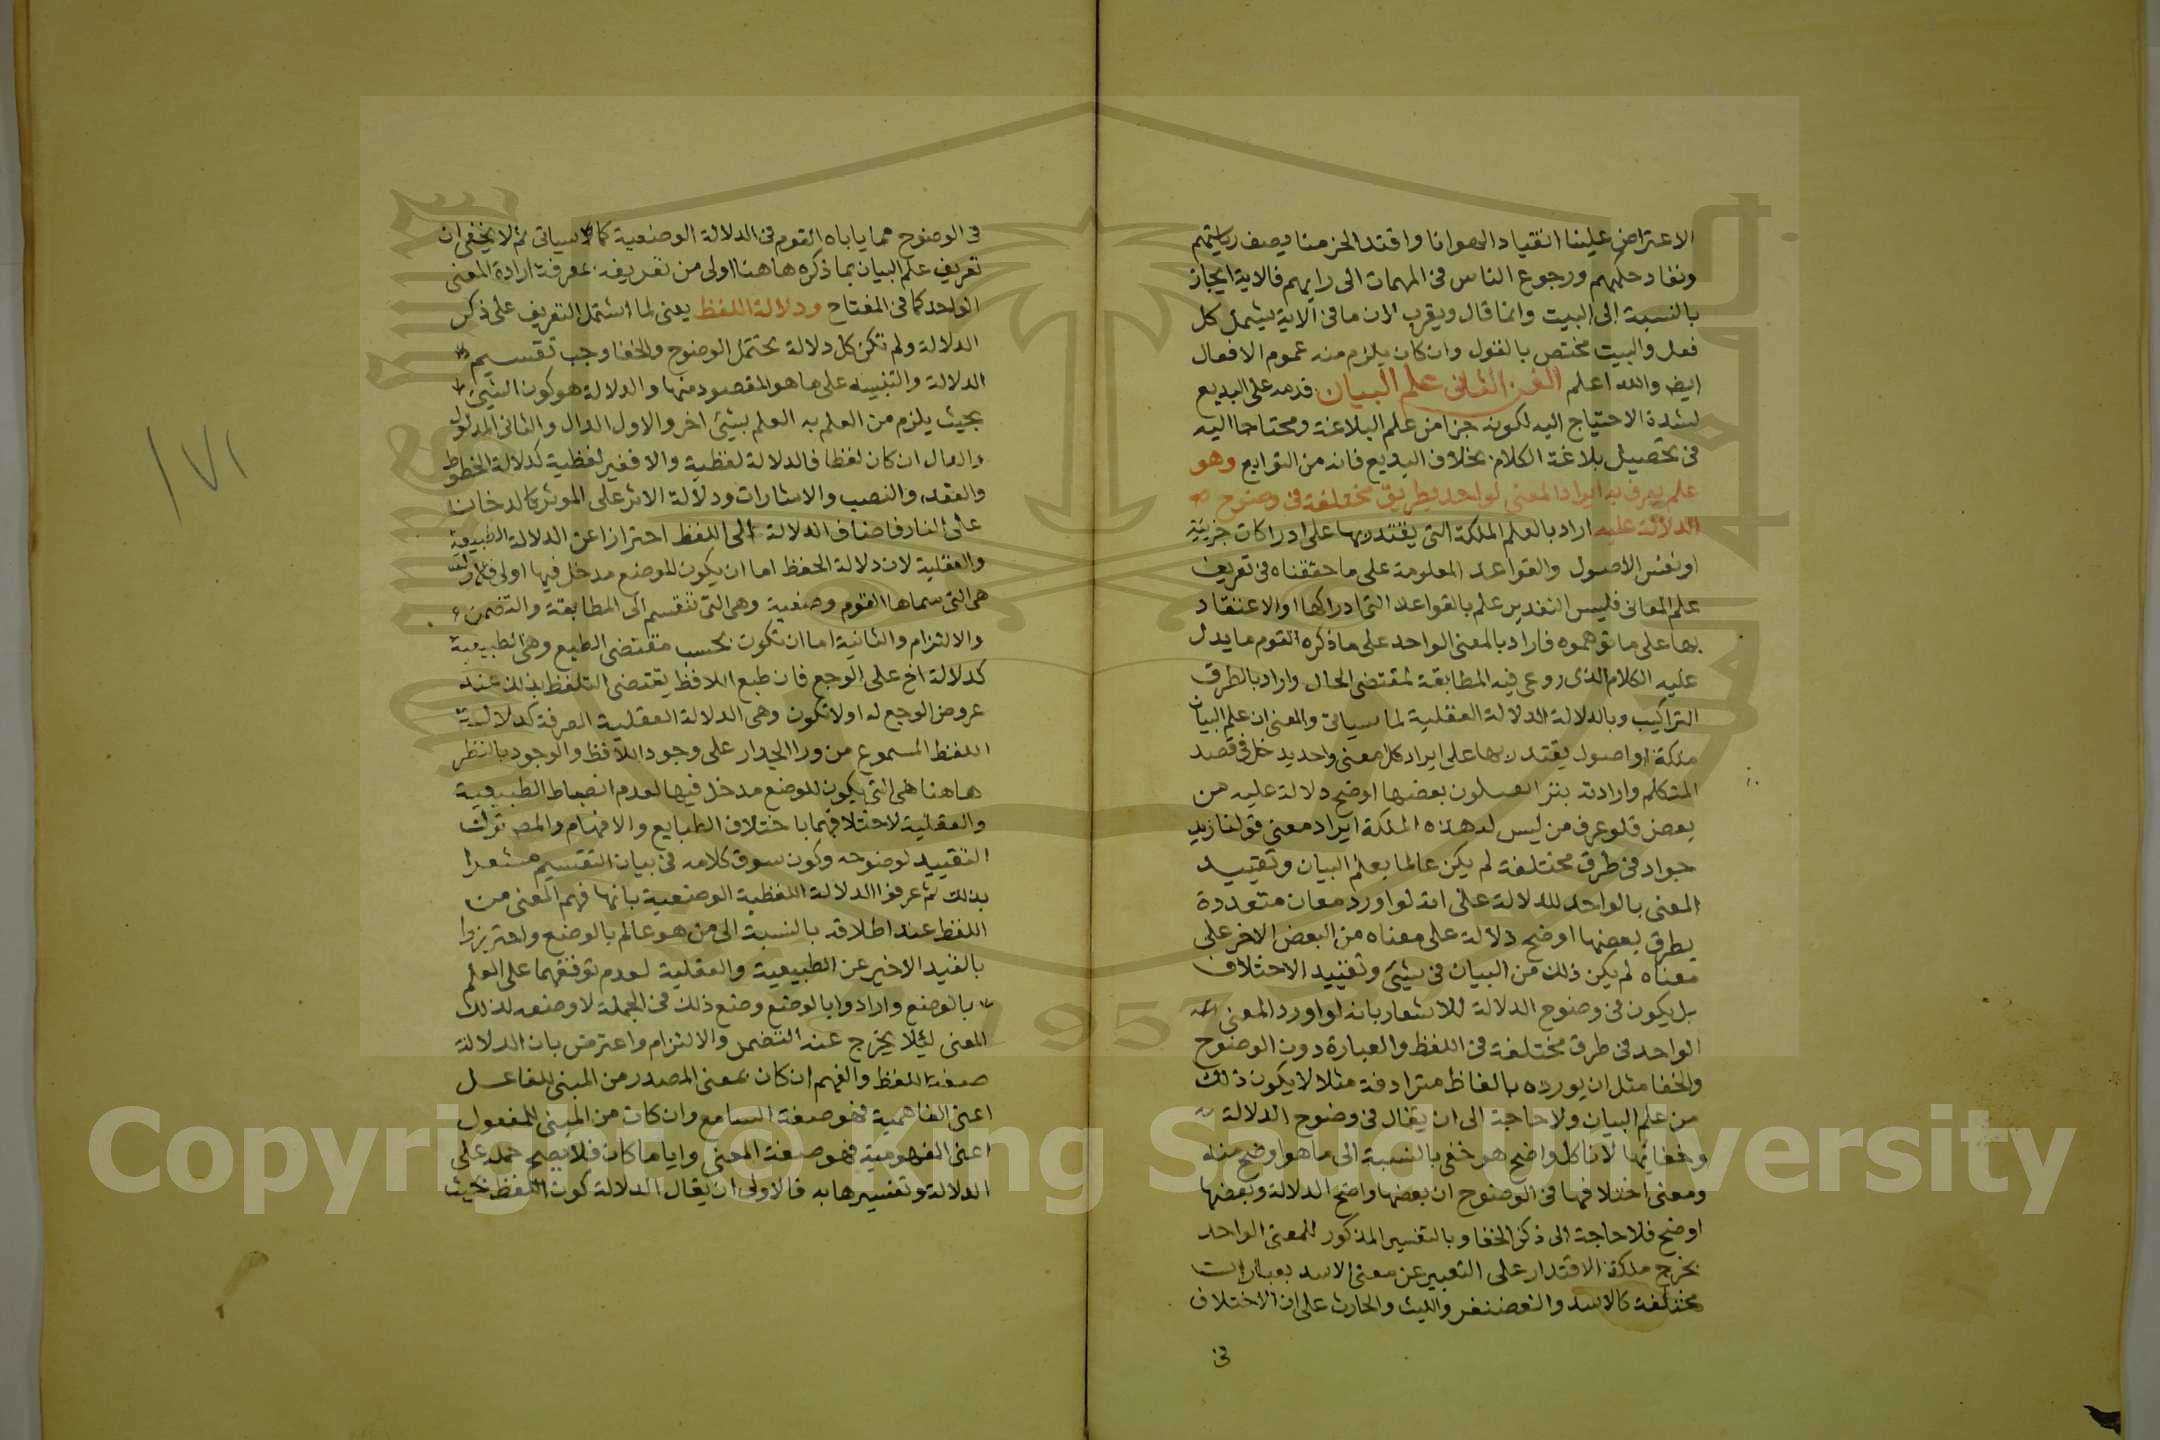 الاعتراض علينا انقيادا لهوانا واقتدا لحزمنا ويصف رياستهم
ونفاد حكمهم ورجوع الناس في المهمات الى رايهم فالاية ايجاز
بالنسبة الى البيت وانما قال ويقرب لان ما في الاية يشمل كل
فعل والبيت مختص بالقول وان كان يلزم منه عموم الافعال
ايض والله اعلم الفن الثاني علم البيان قدمه على البديع
لشدة الاحتياج اليه لكونه جزا من علم البلاغة ومحتاجا اليه
في تحصيل بلاغة الكلام بخلاف البديع فانه من التوابع وهو
علم يعرف به ايراد المعنى الواحد بطريق مختلفة في وضوح
الدلالة عليه اراد بالعلم الملكة التي يقتدر بها على ادراكات جزيية
او نفس الاصول والقواعد المعلومة على ما حققناه في تعريف
علم المعاني فليس التقدير علم بالقواعد التي ادراكها او الاعتقاد
بها على ما توهموه فاراد بالمعنى الواحد على ما ذكره القوم ما يدل
عليه الكلام الذي روعي فيه المطابقة لمقتضى الحال واراد بالطرق
التراكيب وبالدلالة الدلالة العقلية لما سياتي والمعنى ان علم البيان
ملكة او اصول يقتدر بها على ايراد كل معنى واحد يدخل في قصد
المتكلم وارادته بتراكيب يكون بعضها اوضح دلالة عليه من
بعض فلو عرف من ليس له هذه الملكة ايراد معنى قولنا زيد
جواد في طرق مختلفة لم يكن عالما بعلم البيان وتقييد
المعنى بالواحد للدلالة على انه لو اورد معان متعددة
بطرق بعضها اوضح دلالة على معناه من البعض الاخر على
معناه لم يكن ذلك من البيان في شيئ وتقييد الاختلاف
بل يكون في وضوح الدلالة للاشعار بانه لو اورد المعنى
الواحد في طرق مختلفة في اللفظ والعبارة دون الوضوح
والخفا مثل ان يورده بالفاظ مترادفة مثلا لا يكون ذلك
من علم البيان ولا حاجة الى ان يقال في وضوح الدلالة
وخفايها لان كل واضح هو خفي بالنسبة الى ما هو اوضح منه
ومعنى اختلافها في الوضوح ان بعضها واضح الدلالة وبعضها
اوضح فلا حاجة الى ذكر الخفا وبالتفسير المذكور للمعنى الواحد
يخرج ملكة الاقتدار على التعبير عن معنى الاسد بعبارات
مختلفة كالاسد والغضنفر والليث والحارث على ان الاختلاف
في
في الوضوح مما ياباه القوم في الدلالة الوضعية كما سياتي ثم لا يخفى ان
تعريف علم البيان بما ذكره هاهنا اولى من تعريفه بمعرفة ارادة المعنى
الواحد كما في المفتاح ودلالة اللفظ يعني لما اشتمل التعريف على ذكر
الدلالة ولم تكن كل دلالة تحتمل الوضوح والخفا وجب تقسيم
الدلالة والتنبيه على ما هو المقصود منها والدلالة هو كون الشيئ
بحيث يلزم من العلم به العلم بشيئ اخر والاول الدال والثاني المدلول
والدال ان كان لفظا فالدلالة لفظية والا فغير لفظية كدلالة الخطوط
والعقد والنصب والاشارات ودلالة الاثر على الموثر كالدخان
على النار فاضاف الدلالة الى اللفظ احترازا عن الدلالة الطبيعية
والعقلية لان دلالة الحفظ اما ان يكون للوضع مدخل فيها اولى فالاولى
هي التي سماها القوم وضعية وهي التي تنقسم الى المطابقة والتضمن
والالتزام والثانية اما ان تكون بحسب مقتضى الطبع وهي الطبيعية
كدلالة اخ على الوجع فان طبع اللافظ يقتضي التلفظ بذلك عند
عروض الوجع له او لا تكون وهي الدلالة العقلية الصرفة كدلالة
اللفظ المسموع من ورا الجدار على وجود اللافظ والوجود بالنظر
هاهنا هي التي يكون للوضع مدخل فيها لعدم انضباط الطبيعية
والعقلية لاختلافهما باختلاف الطبايع والافهام والمص ترك
التقييد لوضوحه وكون سوق كلامه في بيان التقسيم مشعرا
بذلك ثم عرفوا الدلالة اللفظية الوضعية بانها فهم المعنى من
اللفظ عند اطلاقه بالنسبة الى من هو عالم بالوضع واحترزوا
بالقيد الاخير عن الطبيعية والعقلية لعدم توقفهما على العلم
بالوضع وارادوا بالوضع وضع ذلك في الجملة لا وضعه لذلك
المعنى ليلا يخرج عنه التضمن والالتزام واعترض بان الدلالة
صفة اللفظ والفهم ان كان بمعنى المصدر من المبني للفاعل
اعني الفاهمية فهو صفة السامع وان كان من المبني للمفعول
اعني المفهومية فهو صفة المعنى وايا ما كان فلا يصح حمله على
الدلالة وتفسيرها به فالاولى ان يقال الدلالة كون اللفظ بحيث
١٧١
Copyright © King Saud University
1957